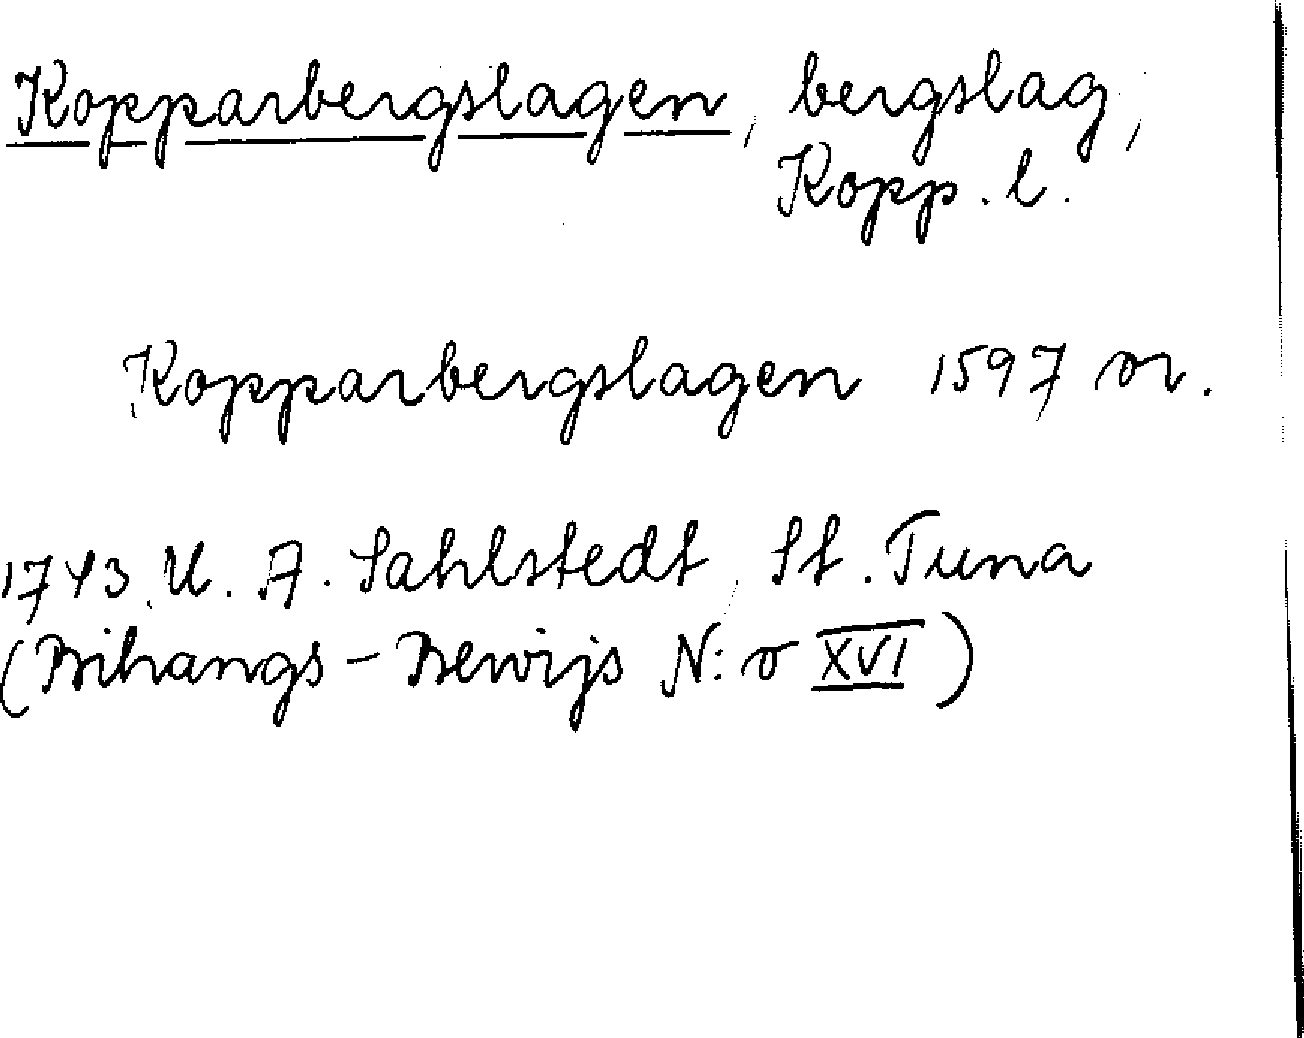 Kopparbergslagen, bergslag,
Kopp. l.
Kopparbergslagen 1597 or.
1743. U. A. Sahlstedt, St. Tuna
(Bihangs-Bewijs N:o XVI)